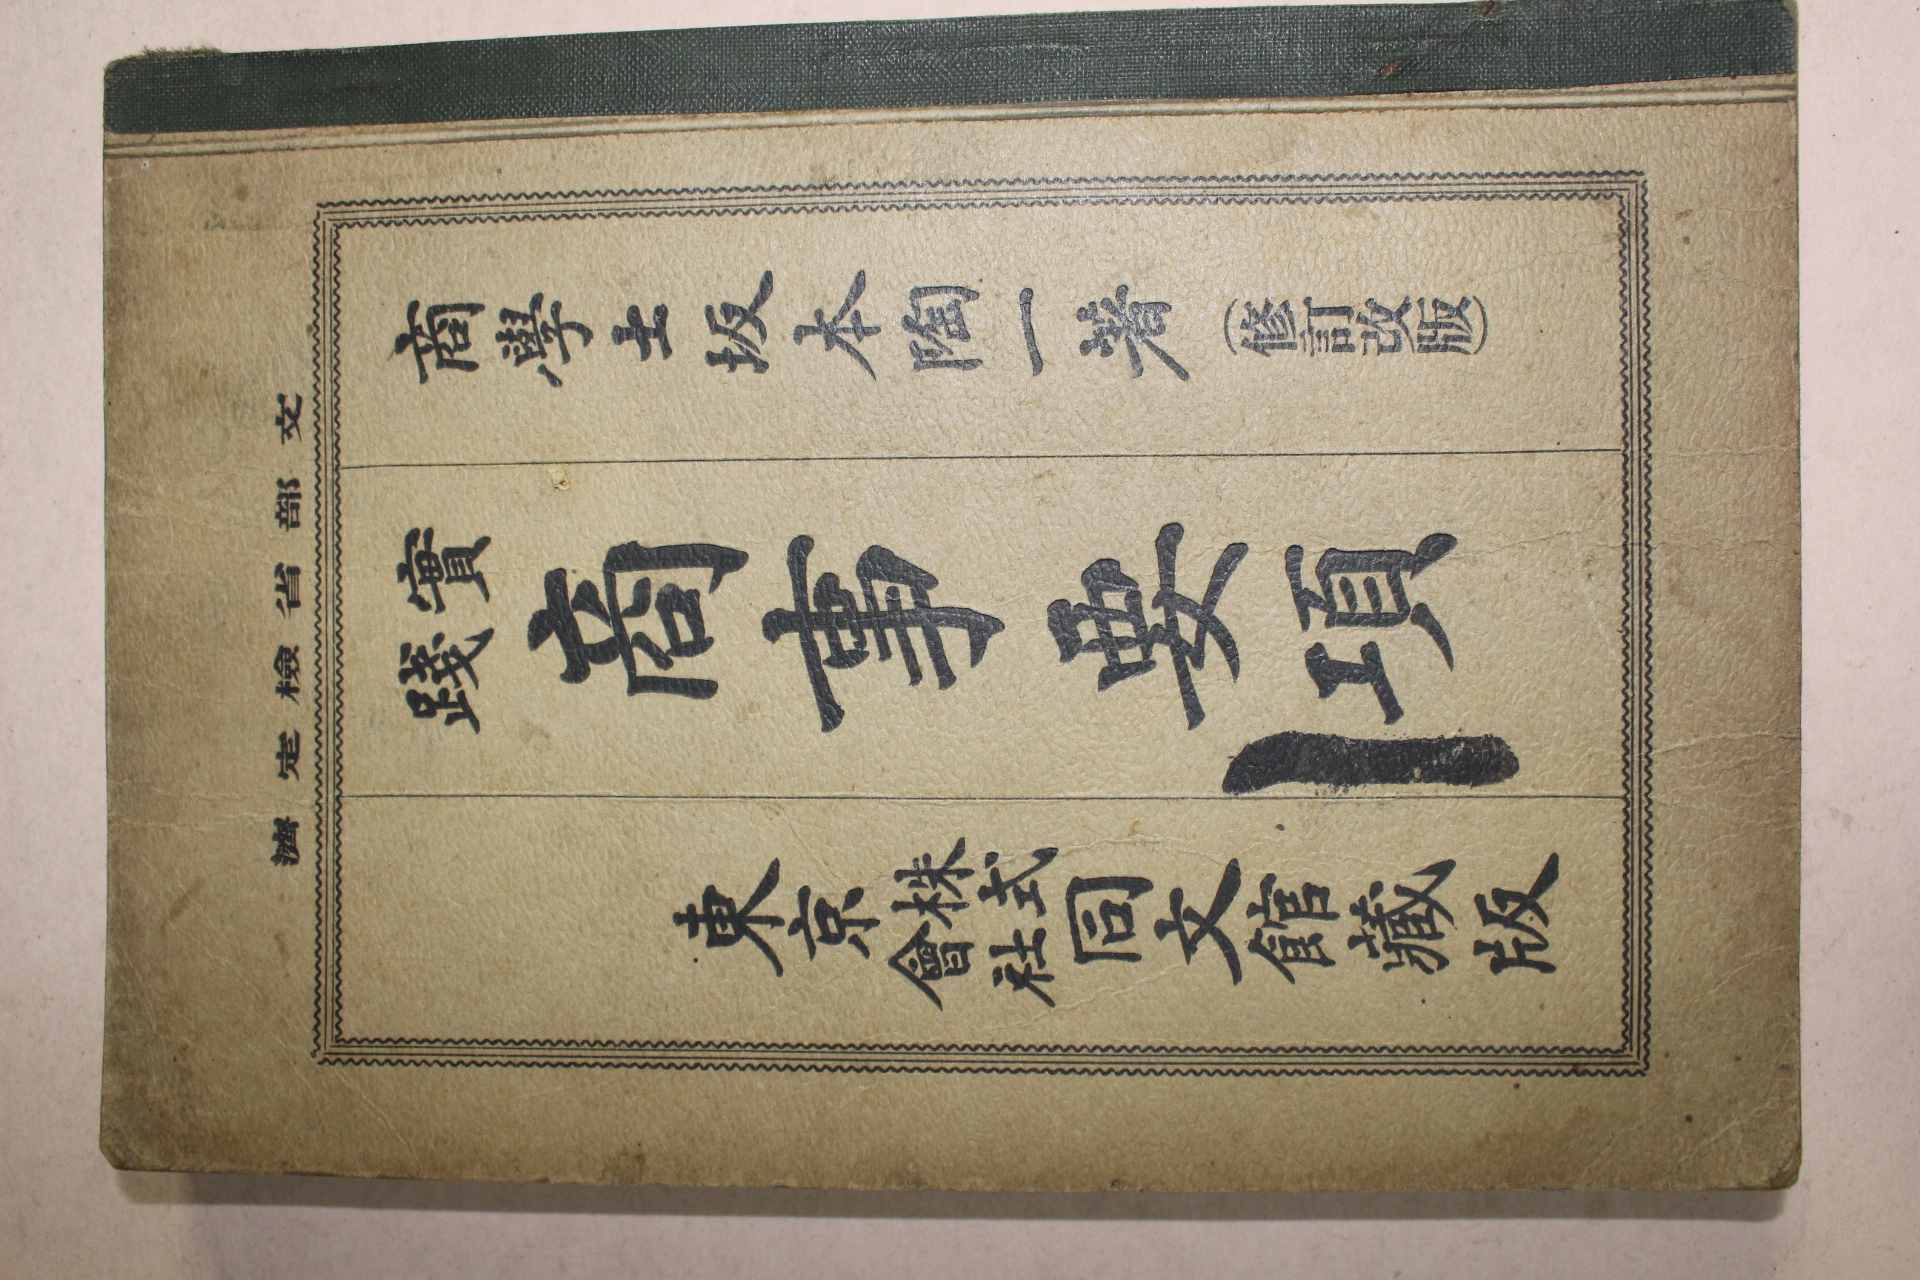 文部省檢定濟
商學士坂本陶一著（修訂改版）
實踐
商事要項
東京株式會社同文館藏版